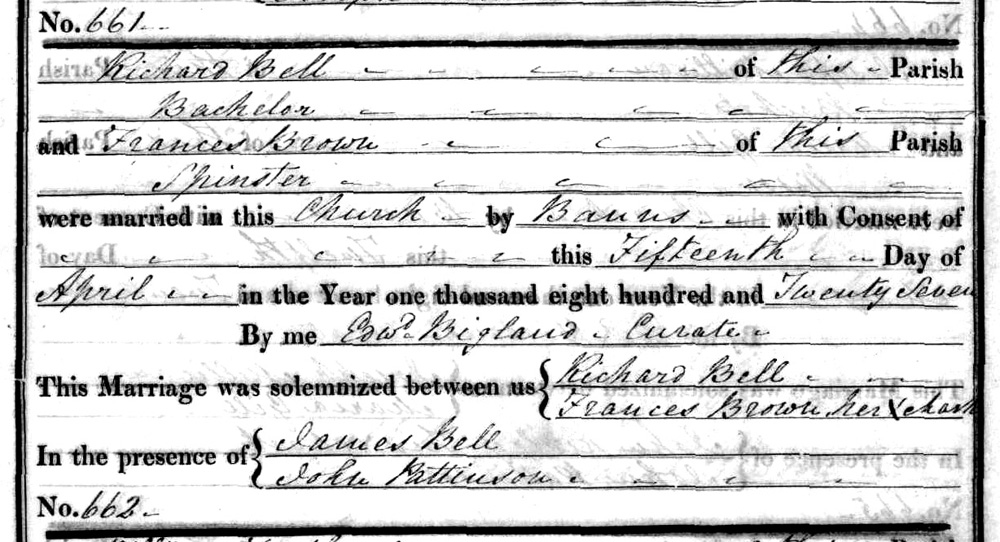 No. 661.
Richard Bell of this Parish
Bachelor
and Frances Brown of this Parish
Spinster
were married in this Church by Banns with Consent of
this Fifteenth Day of
April in the Year one thousand eight hundred and Twenty Seven
By me Edwd. Bigland Curate
This Marriage was solemnized between us { Richard Bell
Frances Brown her X mark
In the presence of { James Bell
John Pattinson
No. 662